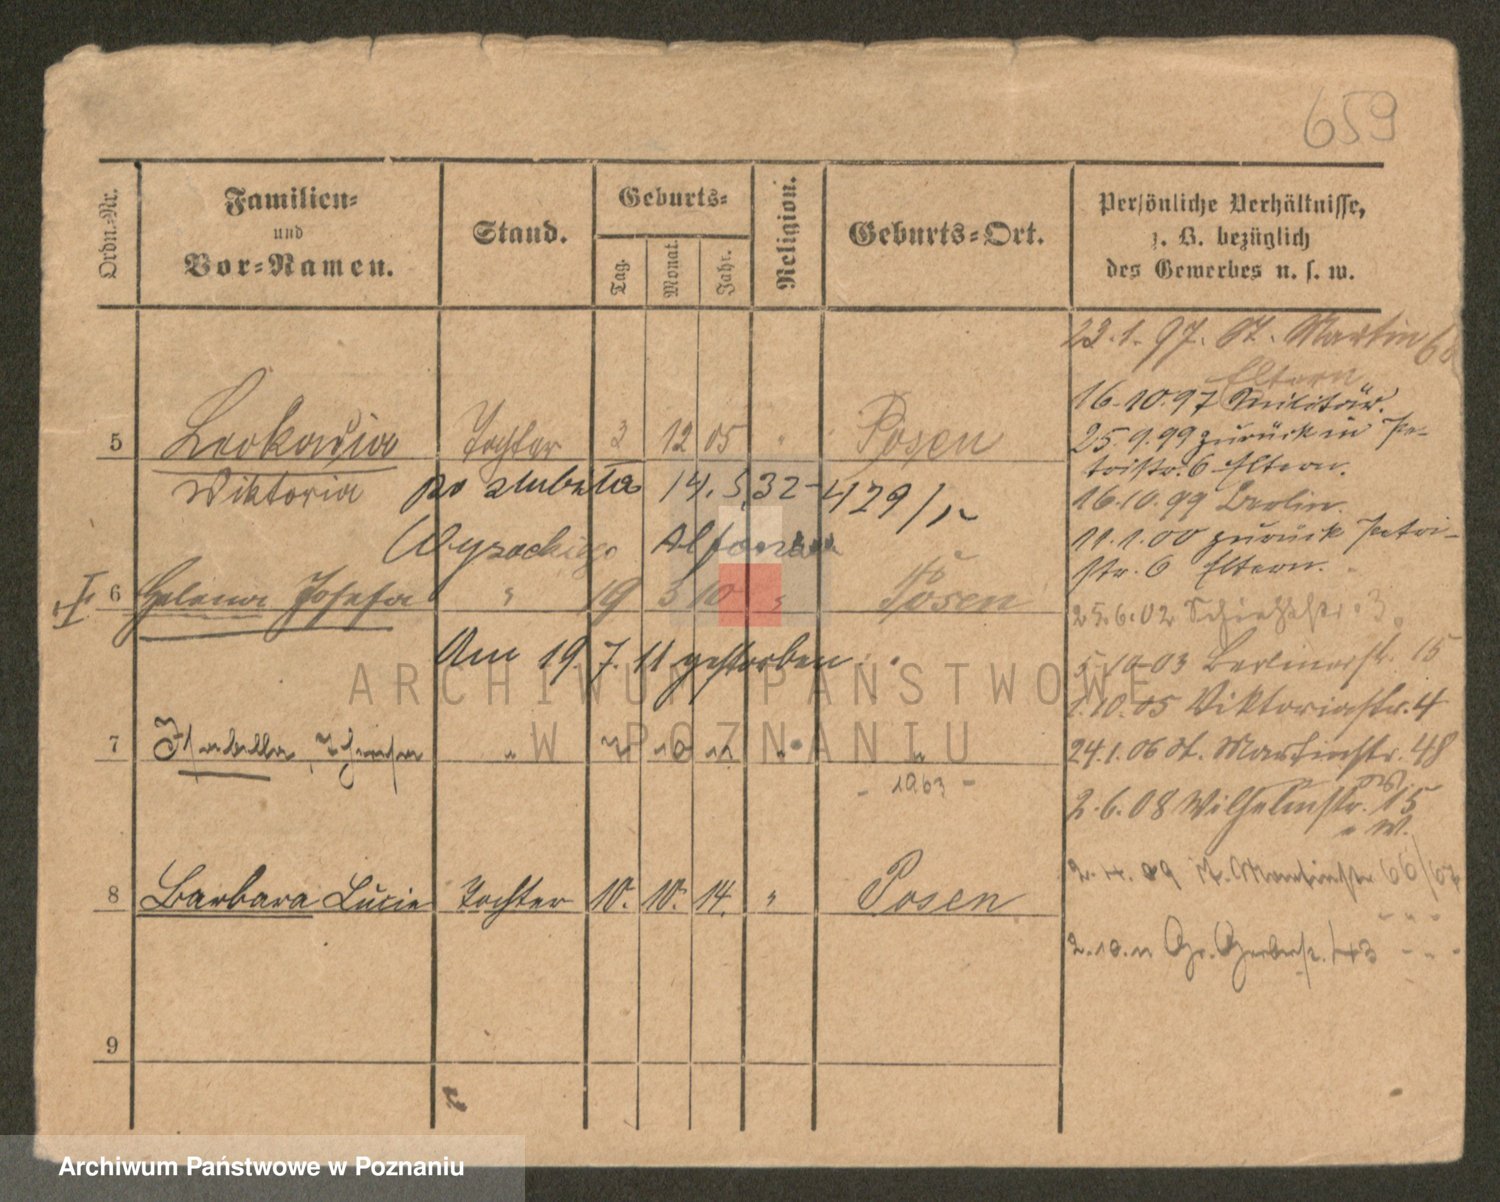 659
Ordn.-Nr.
Familien-
und
Vor-Namen.
Stand.
Geburts-
Tag.
Monat.
Jahr.
Religion.
Geburts-Ort.
Persönliche Verhältnisse,
z. B. bezüglich
des Gewerbes u. s. w.
5 Leokadia Tochter 3 12 05 " Posen
Wiktoria
po ślubie ta 14.5.32 - 429/,-
Wysockiego Alfonsa
I 6 Helena Josefa " 19 3 10 " Posen
Am 19.7.11 gestorben
7 Isabella, " 10 11 " "
- 1963 -
8 Barbara Lucie Tochter 10. 10. 14. " Posen
9
23.1.97. St. Martin 6
Eltern
16.10.97 Militär.
25.9.99 zurück in Pe-
tristr. 6 Eltern.
16.10.99 Berlin.
11.1.00 zurück Petri-
str. 6 Eltern.
25.6.02 Schießstr. 3
5.10.03 Berlinerstr. 15
1.10.05 Viktoriastr. 4
24.1.06 St. Martinstr. 48
2.6.08 Wilhelmstr. 15
u W.
2.4.09 St. Martinstr 66/67
" "
2.10.11 Gr. Gerberstr. 43 - " -
ARCHIWUM PAŃSTWOWE
W POZNANIU
Archiwum Państwowe w Poznaniu